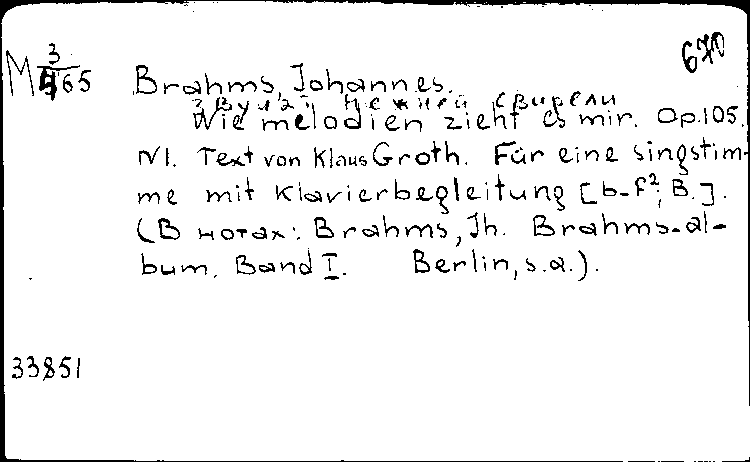 670
M 3/465 Brahms, Johannes.
Звучат нежней свирели
Wie melodien zieht es mir. Op.105.
N1. Text von Klaus Groth. Für eine singstim-
me mit Klavierbegleitung [b-f²; B.].
(В нотах: Brahms, Jh. Brahms-al-
bum. Band I. Berlin, s.a.).
33851